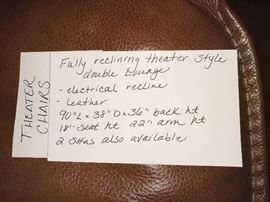 THEATER
CHAIRS
Fully reclining theater style
double Lounge
- electrical recline
- leather
90"L x 38"D x 36" back ht
18" Seat ht 22" arm ht
2 Sofas also available